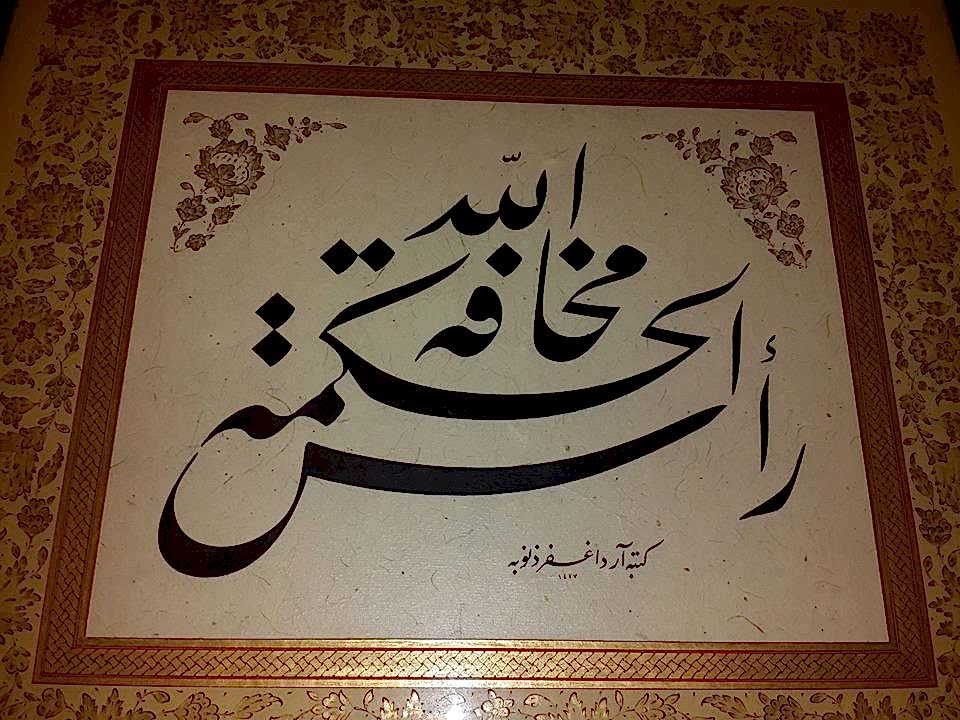 رأس الحكمة مخافة الله
كتبه آرداغ غفر ذنوبه
١٤٢٧